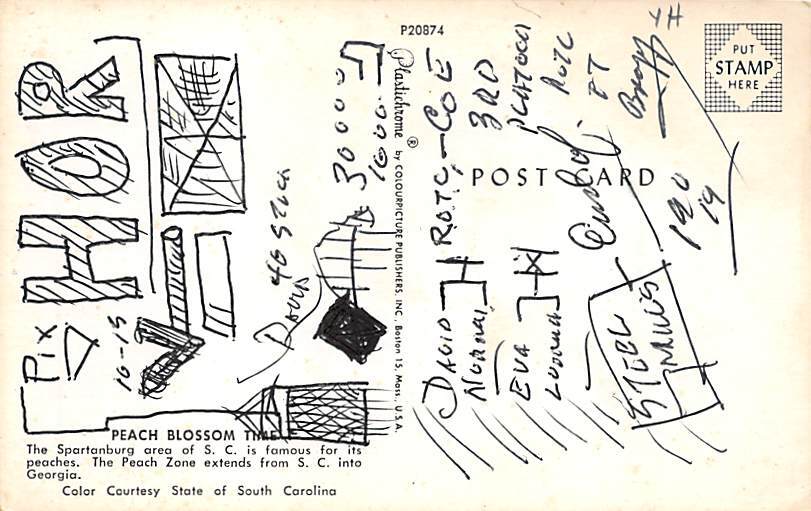 P20874
PUT
STAMP
HERE
POST CARD
Plastichrome ® by COLOURPICTURE PUBLISHERS, INC., Boston 15, Mass., U.S.A.
PEACH BLOSSOM TIME
The Spartanburg area of S. C. is famous for its
peaches. The Peach Zone extends from S. C. into
Georgia.
Color Courtesy State of South Carolina
HOR
Pix
10-15
DAVIS
30000
1000
ROTC-COE
3RD
PLATOON
ROTC
PT
DAVID
NORMAN
EVA
STEEL
MILLS
190
19